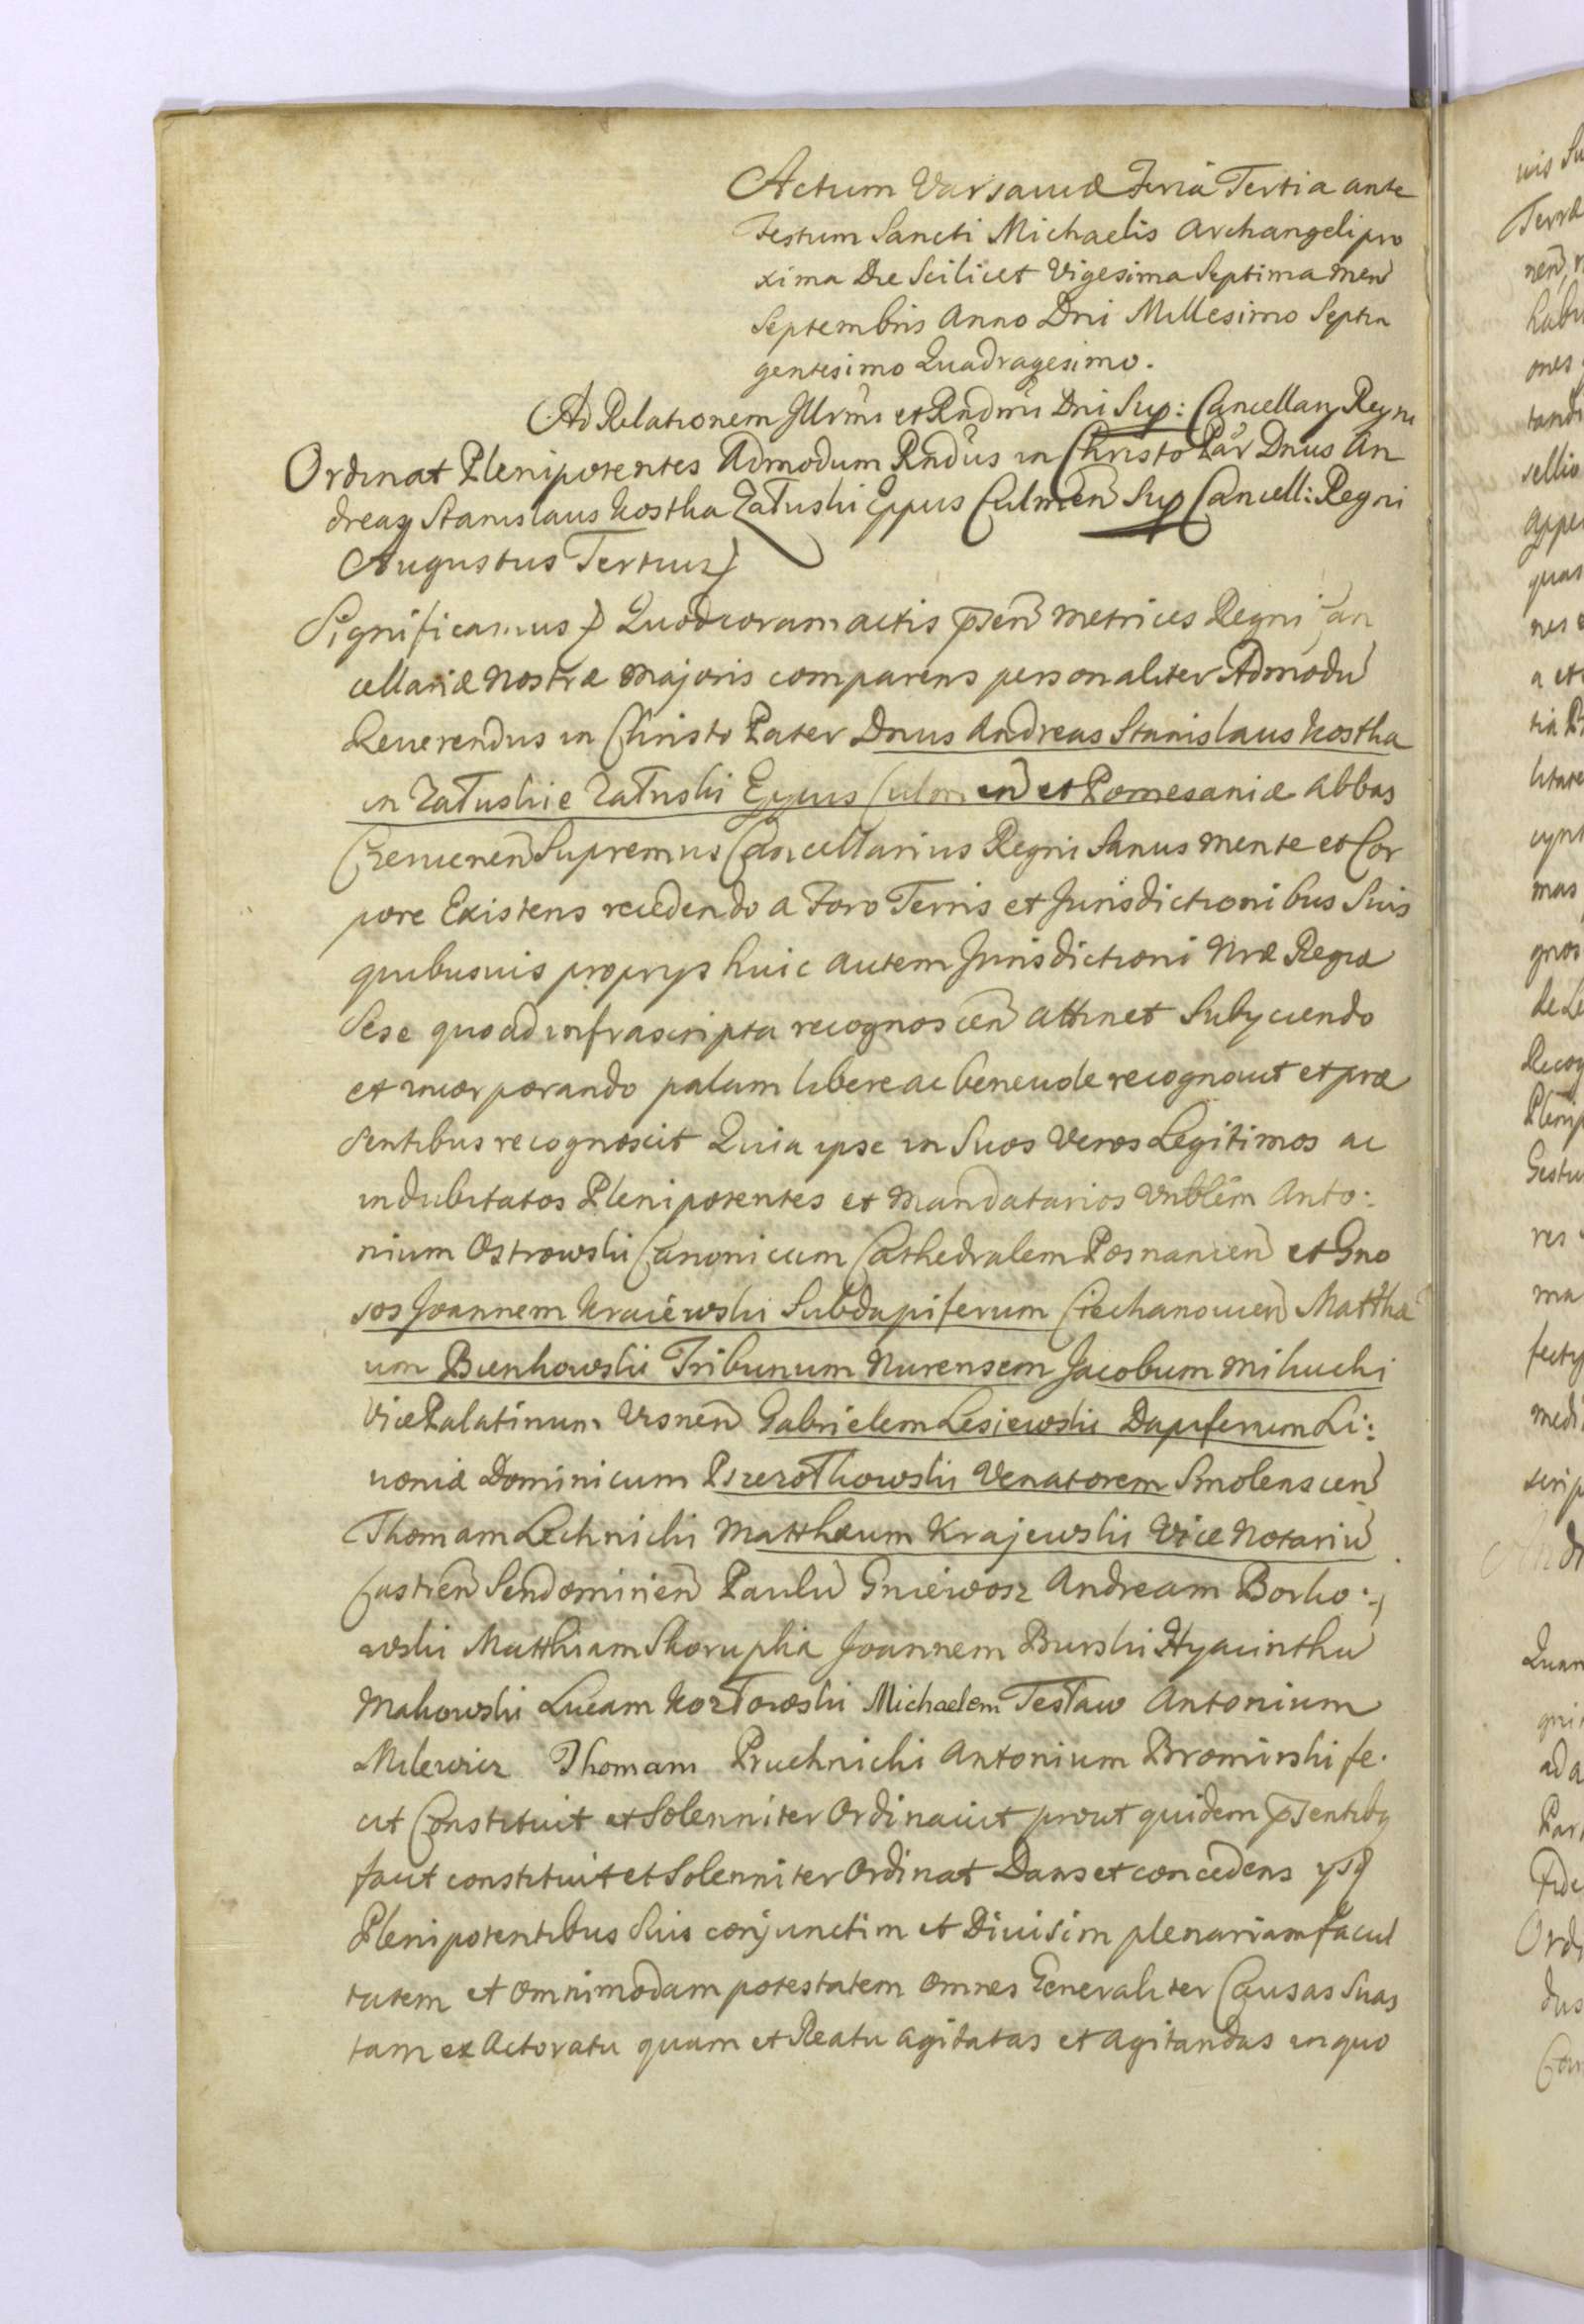 Actum Varsaviæ Feria Tertia ante
Festum Sancti Michaelis Archangeli pro
xima Die Scilicet Vigesima Septima men̄
Septembris Anno Dni Millesimo Septin
gentesimo Quadragesimo.
Ad Relationem Illrmi et Rndmi Dni Sup: Cancellarÿ Regni
Ordinat Plenipotentes Admodum Rndus in Christo Par Dnus An
dreas Stanislaus Kostka Załuski Eppus Culmen̄ Sup Cancell: Regni
Augustus Tertius
Significamus Quod coram actis p̄sen̄ metrices Regni Can
cellariæ Nostræ Majoris comparens personaliter Admodū
Reverendus in Christo Pater Dnus Andreas Stanislaus Kostka
in Załuskie Załuski Eppus Culmen̄ et Pomesaniæ Abbas
Czervenen̄ Supremus Cancellarius Regni Sanus mente et Cor
pore Existens recedendo a Foro Terris et Jurisdictionibus Suis
quibusuis proprÿs huic autem Jurisdictioni Nræ Regiæ
Sese quoad infrascripta recognoscen̄ attinet Subÿciendo
et incorporando palam libere ac beneuole recognouit et præ
sentibus recognoscit Quia ipse in Suos Veros Legitimos ac
indubitatos Plenipotentes et Mandatarios Vnblem Anto:
nium Ostrowski Canonicum Cathedralem Posnanien̄ et Gno
sos Joannem Kraiewski Subdapiferum Ciechanouien̄ Matthæ
um Bienkowski Tribunum Nurensem Jacobum Mikucki
Vice Palatinum Visnen̄ Gabrielem Lesiewski Dapiferum Li:
voniæ Dominicum Przezdkowski Venatorem Smolenscen̄
Thomam Lechnicki Matthæum Krajewski Vice Notariū
Castren̄ Sendomirien̄ Paulū Gniewosz Andream Borko:
wski Matthiam Skorupka Joannem Burski Hyacinthū
Makowski Lucam Kozłowski Michaelem Tesław Antonium
Milewicz Thomam Pruchnicki Antonium Bromirski fe.
cit Constituit et Solenniter Ordinauit prout quidem p̄sentibg
facit constituit et Solenniter Ordinat Dans et concedens ÿsq̄
Plenipotentibus Suis conjunctim et Diuisim plenariam facul
tatem et omnimodam potestatem omnes Generaliter Causas Suas
tam ex Actoratu quam et Reatu agitatas et agitandas in quo